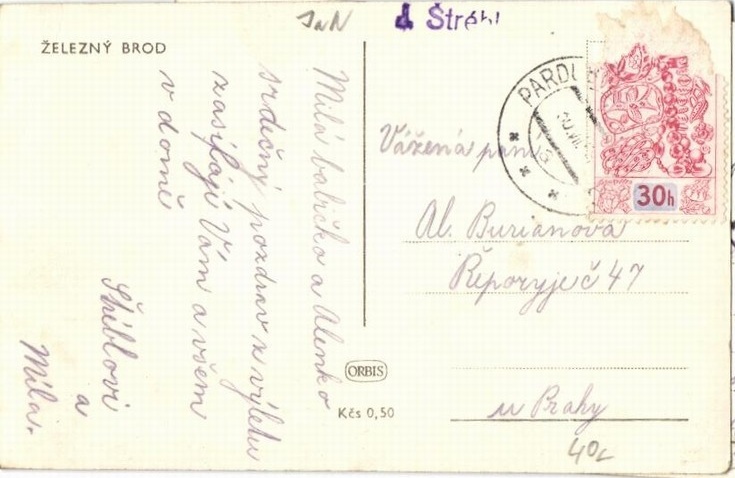 JaN
d Štréhl
ŽELEZNÝ BROD
Milá babičko a Alenko
srdečný pozdrav z výletu
zasílají Vám a všem
v domě
Stéblovi
a
Míla.
PARDUB
30h
Vážená paní
Al. Burianová
Řeporyje č 47
u Prahy
ORBIS
Kčs 0,50
40